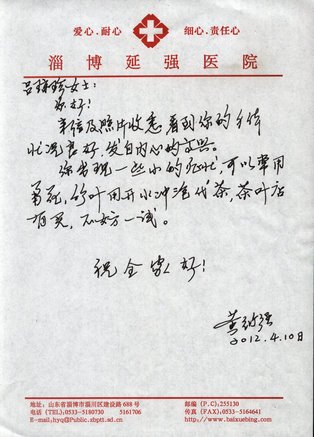 爱心、耐心 细心、责任心
淄博延强医院
吕琼珍女士：
您好！
来信及照片收悉 看到你的身体
状况良好，发自内心的高兴。
你出现一些小的症状，可以单用
竹叶用开水冲泡代茶，茶叶店
有买，不妨一试。
祝全家好！
黄衍强
2012.4.10日
地址：山东省淄博市淄川区建设路688号 邮编（P.C）,255130
电话（TEL):0533-5180730 5161706 传真（FAX):0533-5164641
E-mail,hyq@Public.zbptt.sd.cn http://www.baixuebing.com